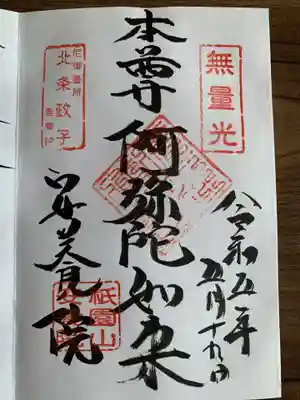 無量光
令和五年
五月十九日
本尊阿弥陀如来
尼御台所
北条政子
安養院
祇園山